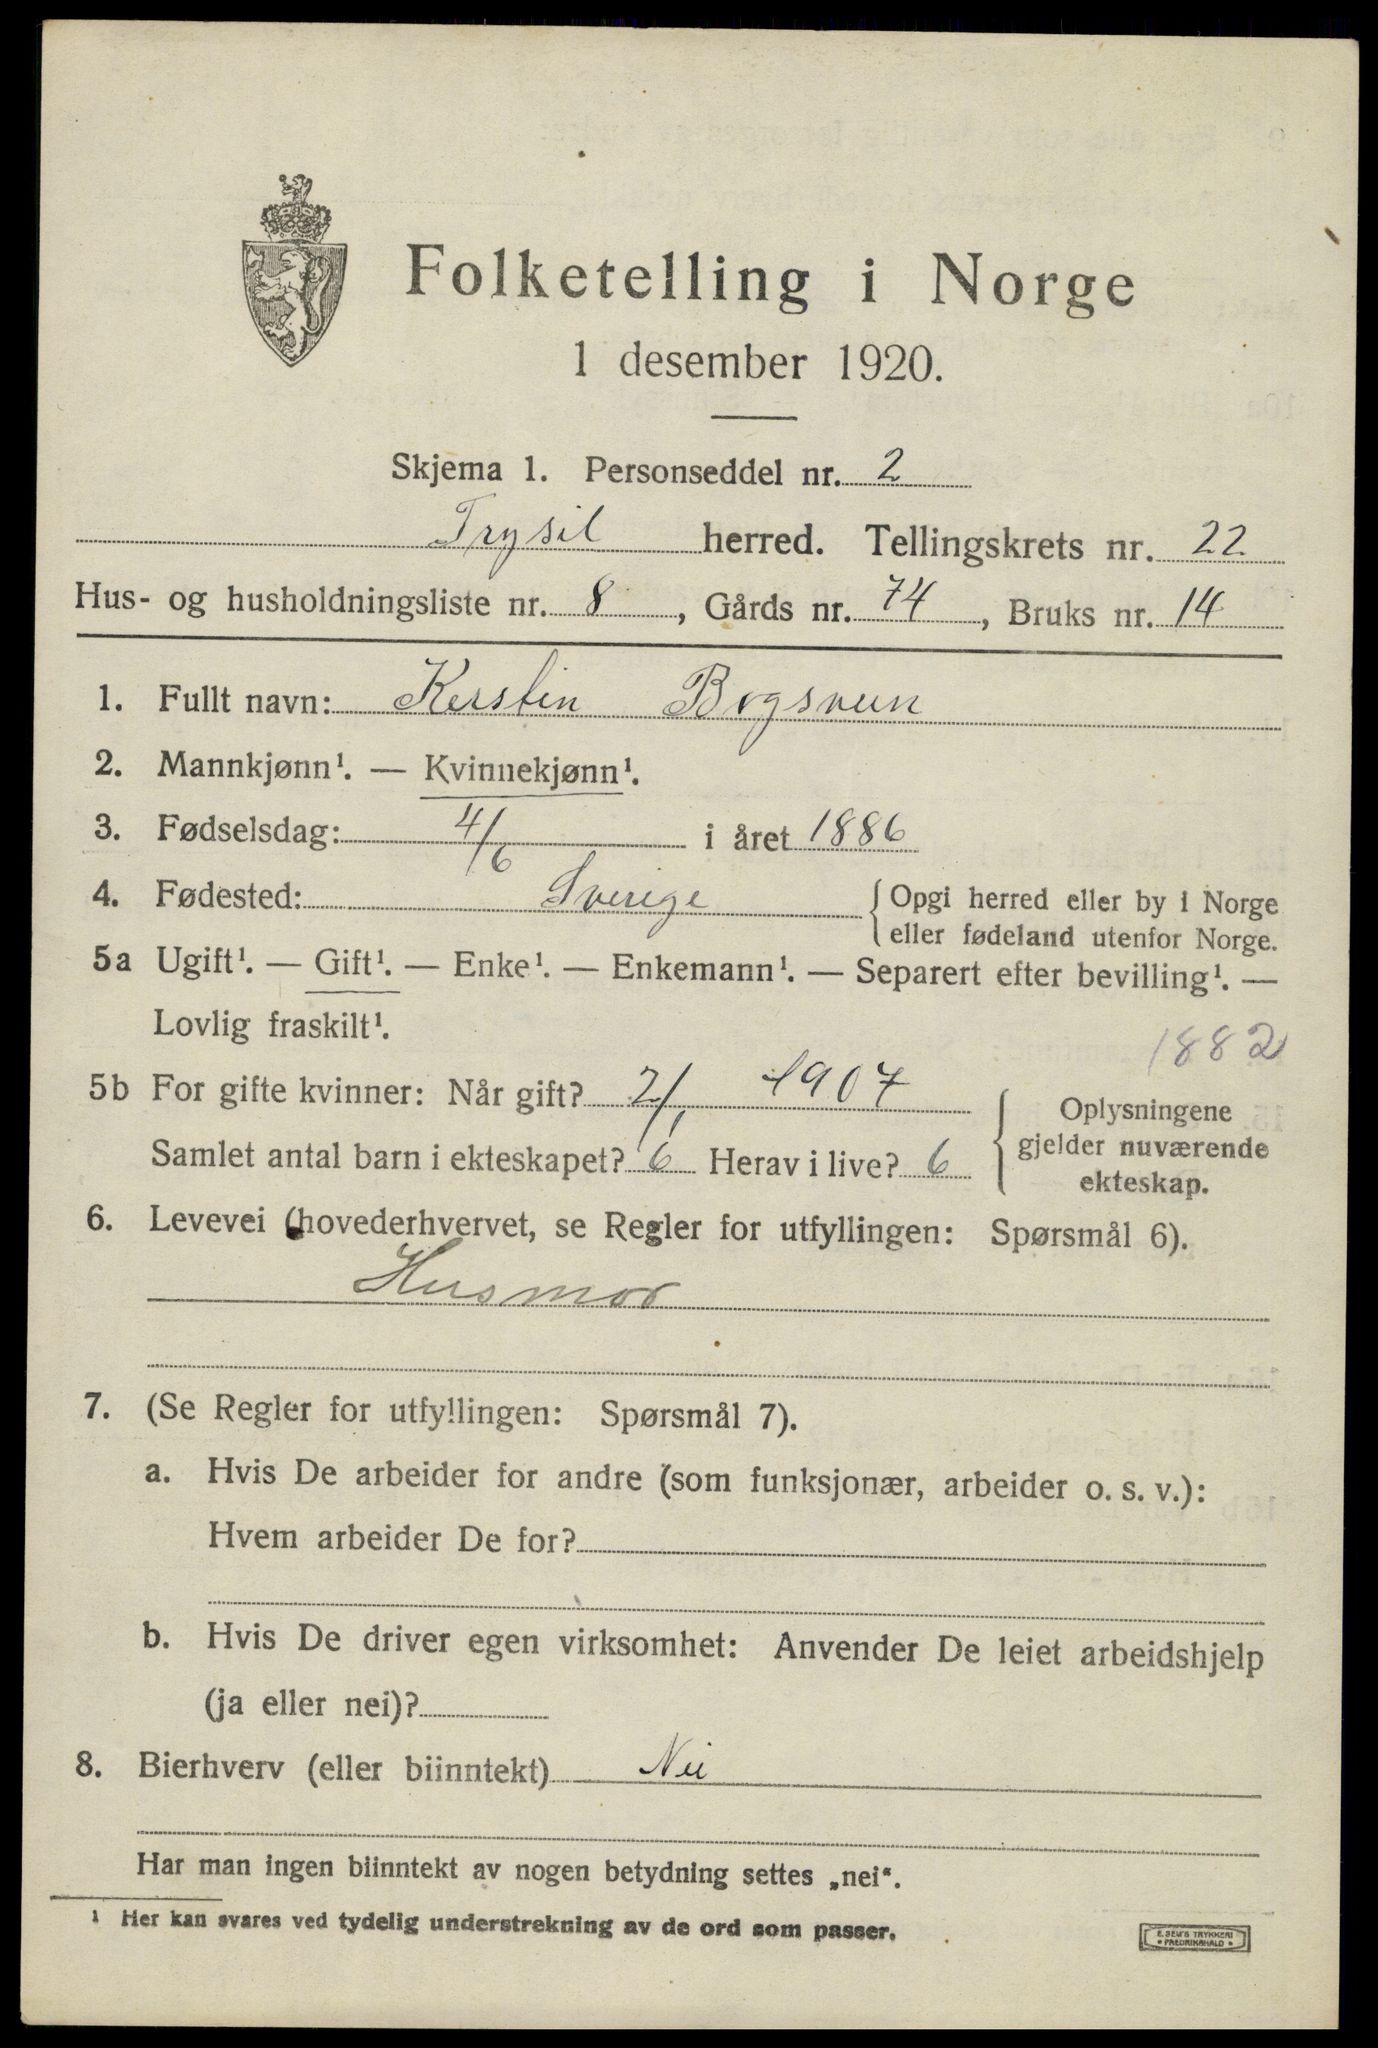 Folketelling i Norge
1 desember 1920.
Skjema 1. Personseddel nr. 2
Trysil herred. Tellingskrets nr. 22
Hus- og husholdningsliste nr. 8, Gårds nr. 74, Bruks nr. 14
1. Fullt navn: Kerstin Bogsveen
2. Mannkjønn¹. — Kvinnekjønn¹.
3. Fødselsdag: 4/6 i året 1886
4. Fødested: Sverige { Opgi herred eller by i Norge
eller fødeland utenfor Norge.
5a Ugift¹. — Gift¹. — Enke¹. — Enkemann¹. — Separert efter bevilling¹. —
Lovlig fraskilt¹.
1882
5b For gifte kvinner: Når gift? 2/1 1907
Samlet antal barn i ekteskapet? 6 Herav i live? 6
{ Oplysningene
gjelder nuværende
ekteskap.
6. Levevei (hovederhvervet, se Regler for utfyllingen: Spørsmål 6).
Husmor
7. (Se Regler for utfyllingen: Spørsmål 7).
a. Hvis De arbeider for andre (som funksjonær, arbeider o. s. v.):
Hvem arbeider De for?
b. Hvis De driver egen virksomhet: Anvender De leiet arbeidshjelp
(ja eller nei)?
8. Bierhverv (eller biinntekt) Nei
Har man ingen biinntekt av nogen betydning settes „nei“.
¹ Her kan svares ved tydelig understrekning av de ord som passer.
E. SEM'S TRYKKERI
• FREDRIKSHALD •